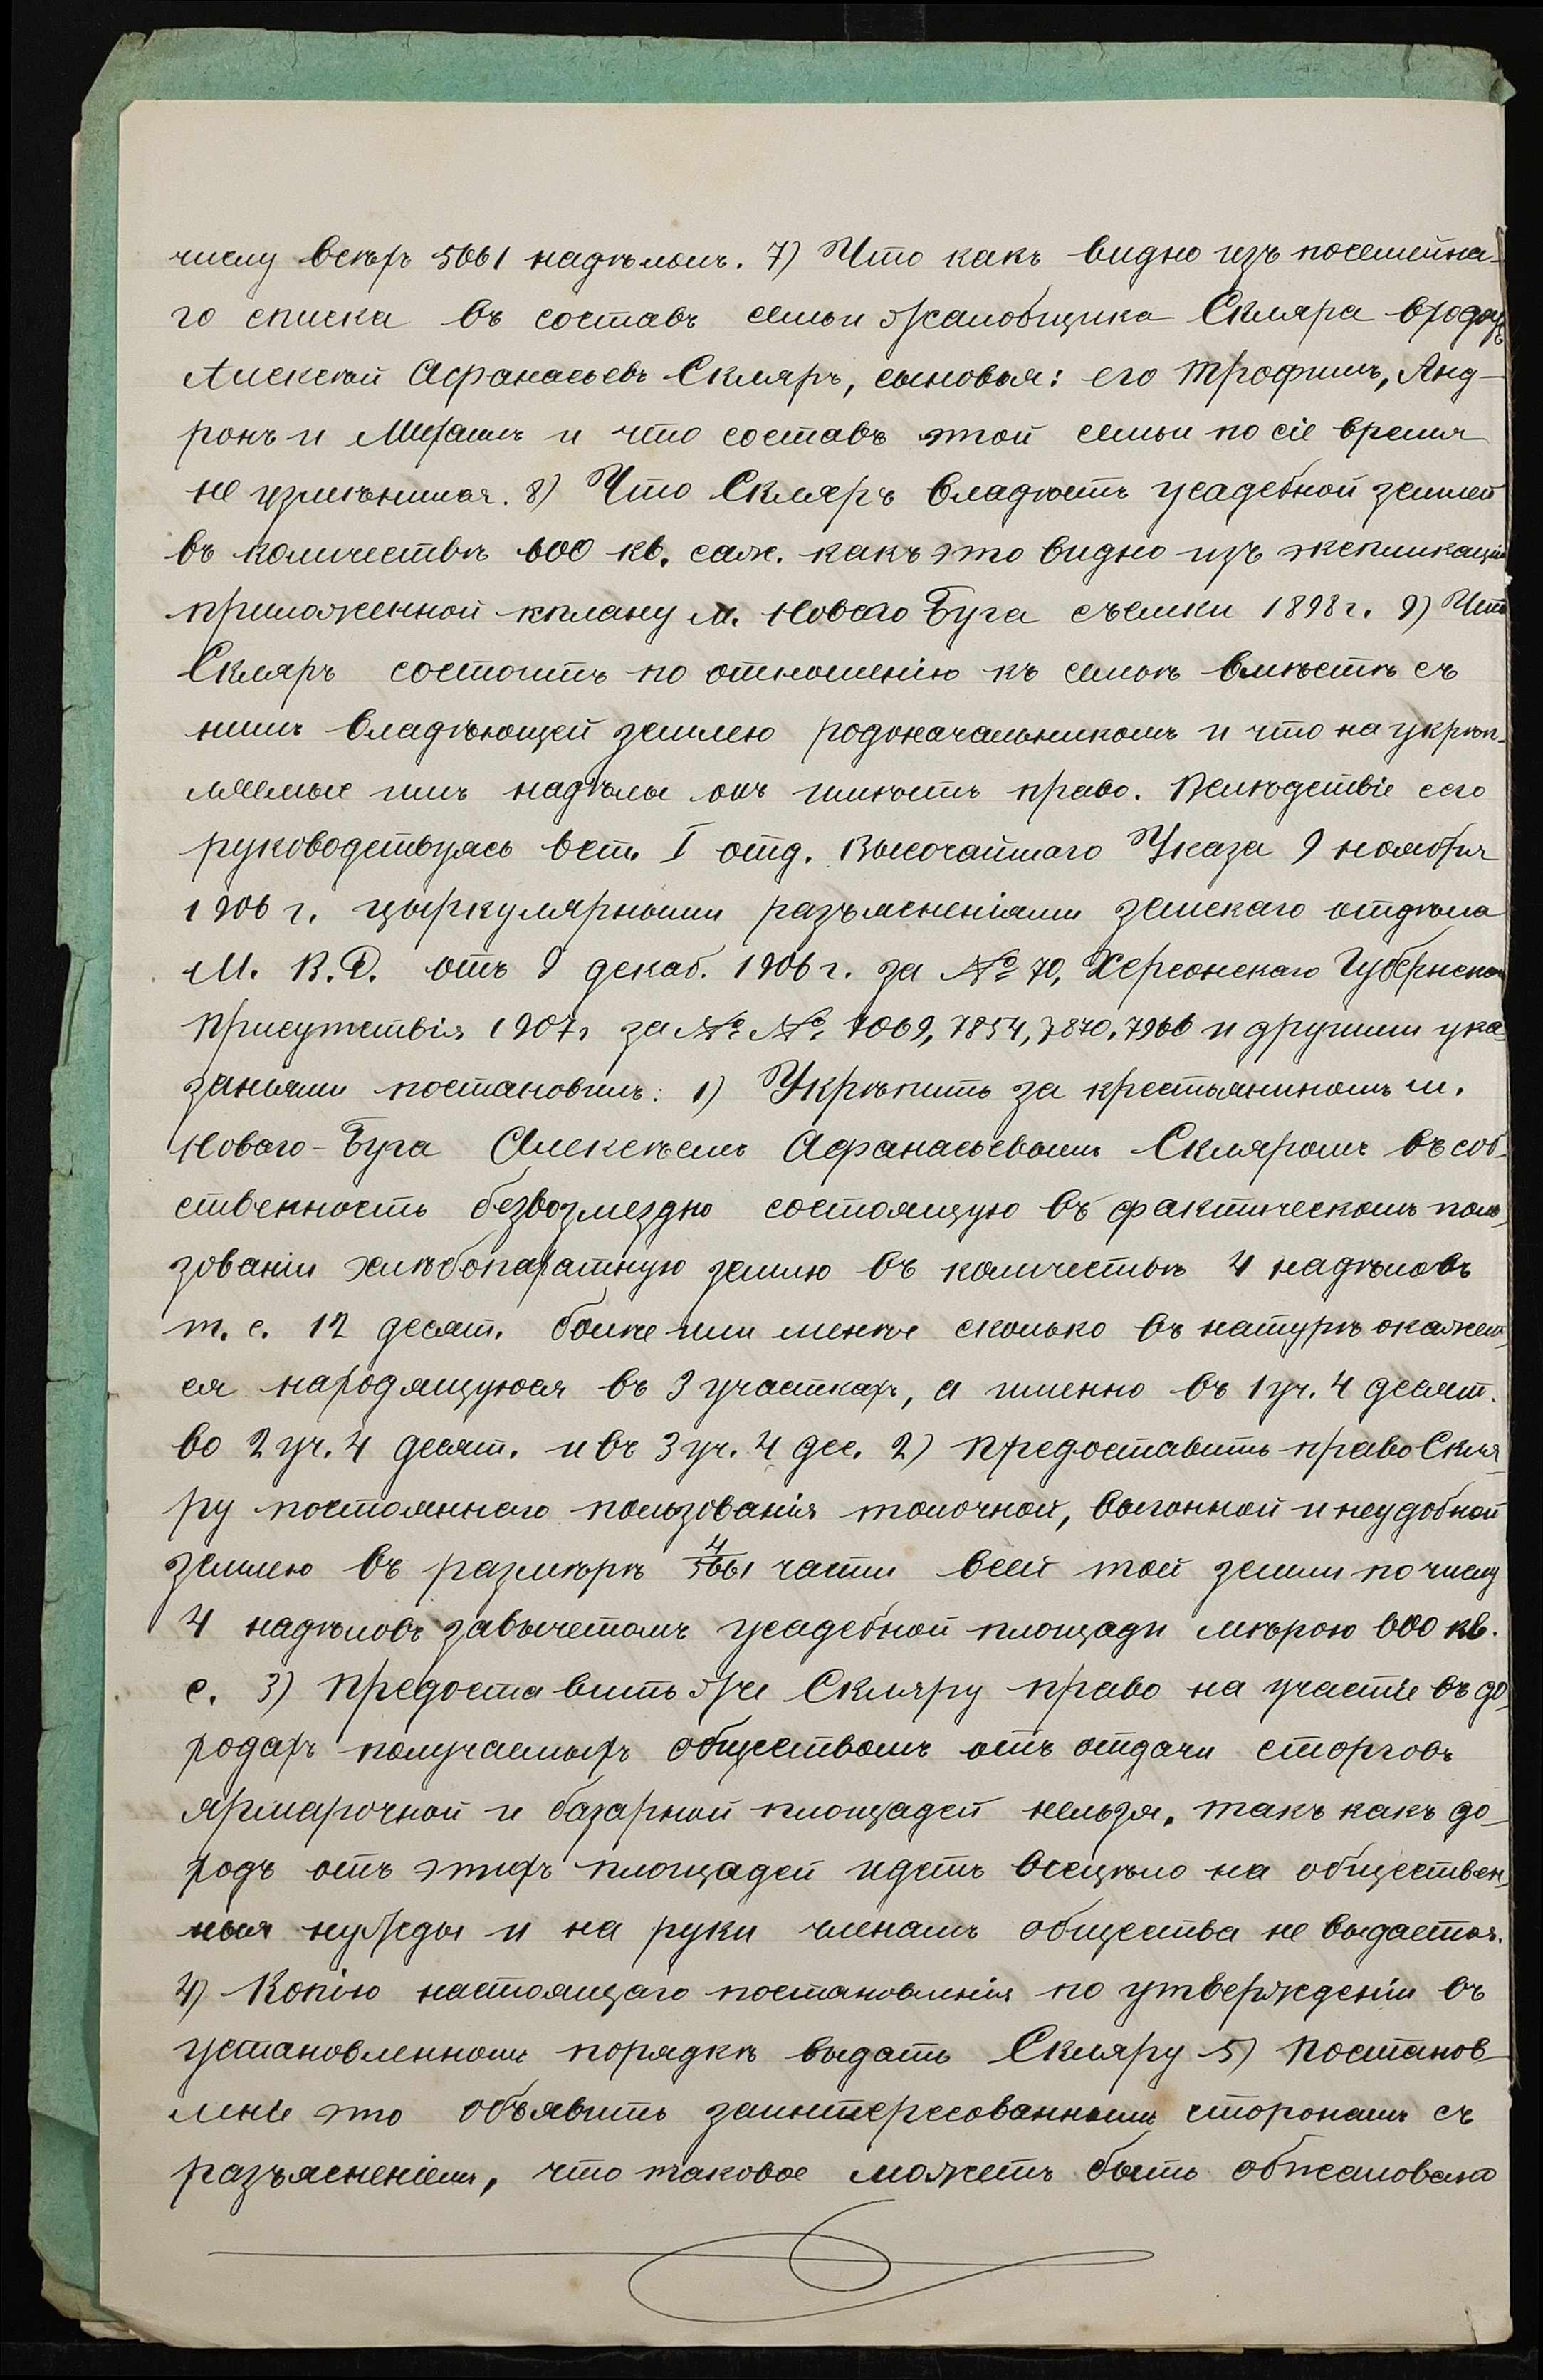 числу всѣхъ 5661 надѣломъ. 7) Что какъ видно изъ посемейна-
го списка въ составъ семьи жалобщика Скляра входятъ
Алексѣй Афанасьевъ Скляръ, сыновья: его Трофимъ, Анд-
ронъ и Михаилъ и что составъ этой семьи по сіе время
не измѣнился. 8) Что Скляръ владѣетъ усадебной землей
въ количествѣ 600 кв. саж. какъ это видно изъ экспликаціи
приложенной къ плану м. Новаго Буга съемки 1898 г. 9) Что
Скляръ состоитъ по отношенію къ семьѣ вмѣстѣ съ
нимъ владѣющей землею родоначальникомъ и что на укрѣп-
ляемые имъ надѣлы онъ имѣетъ право. Вслѣдствіе сего
руководствуясь вст. I отд. Высочайшаго Указа 9 ноября
1906 г. циркулярными разъясненіями земскаго отдѣла
М. В. Д. отъ 9 декаб. 1906 г. за № 70, Херсонскаго Губернска
Присутствія 1907 г за №№ 7069, 7854, 7870, 7966 и другими ука-
заньями постановилъ: 1) Укрѣпить за крестьяниномъ м.
Новаго-Буга Алексѣемъ Афанасьевымъ Скляромъ въ соб-
ственность безвозмездно состоящую въ фактическомъ поль-
зованіи хлѣбопахатную землю въ количествѣ 4 надѣловъ
т. е. 12 десят. болѣе или менѣе сколько въ натурѣ окажет-
ся находящуюся въ 3 участкахъ, а именно въ 1 уч. 4 десят.
во 2 уч. 4 десят. и въ 3 уч. 4 дес. 2) Предоставить право Скля-
ру постояннаго пользованія толочной, выгонной и неудобной
землею въ размѣрѣ 4/5661 части всей той земли по числу
4 надѣловъ завычетомъ усадебной площади мѣрою 600 кв.
с. 3) Предоставить же Скляру право на участіе въ до-
ходахъ получаемыхъ обществомъ отъ отдачи сторговъ
ярмарочной и базарной площадей нельзя, такъ какъ до-
ходъ отъ этихъ площадей идетъ всецѣло на обществен-
ныя нужды и на руки членамъ общества не выдается.
4) Копію настоящаго постановленія по утвержденіи въ
установленномъ порядкѣ выдать Скляру 5) Постанов-
ленье это объявить заинтересованнымъ сторонамъ съ
разъясненіемъ, что таковое можетъ быть обжаловано